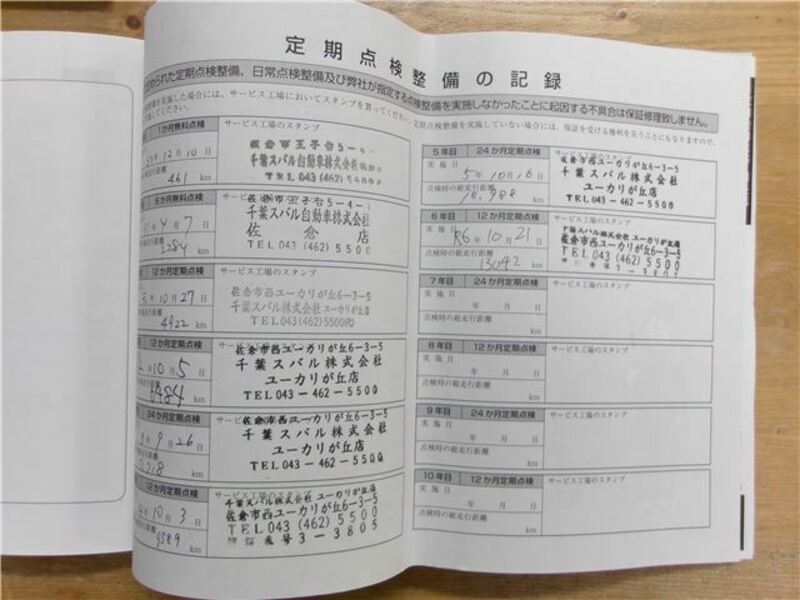 定期点検整備の記録
められた定期点検整備、日常点検整備及び弊社が指定する点検整備を実施しなかったことに起因する不具合は保証修理致しません。
整備を実施した場合には、サービス工場においてスタンプを貰ってください。
定期点検整備を実施していない場合には、保証を受ける権利を失うこともになりますので、
してください。
1か月無料点検
サービス工場のスタンプ
12月10日
461 km
佐倉市王子台5-4-
千葉スバル自動車株式会社
TEL 043 (462) 5
6か月無料点検
サービス工場のスタンプ
4月7日
2284 km
佐倉市王子台5-4-1
千葉スバル自動車株式会社
佐倉店
TEL 043 (462) 5500
12か月定期点検
サービス工場のスタンプ
元年10月27日
4922 km
佐倉市西ユーカリが丘6-3-5
千葉スバル株式会社
TEL 043 (462) 5500
12か月定期点検
サービス工場のスタンプ
2年10月5日
6484 km
佐倉市西ユーカリが丘6-3-5
千葉スバル株式会社
ユーカリが丘店
TEL 043-462-5500
24か月定期点検
サービス工場のスタンプ
9月26日
km
佐倉市西ユーカリが丘6-3-5
千葉スバル株式会社
ユーカリが丘店
TEL 043-462-5500
12か月定期点検
サービス工場のスタンプ
10月3日
9589 km
千葉スバル株式会社 ユーカリが丘店
佐倉市西ユーカリが丘6-3-5
TEL 043 (462) 5500
番号3-3805
5年目 24か月定期点検
サービス工場のスタンプ
実施日
5年10月16日
点検時の総走行距離
10,988 km
佐倉市西ユーカリが丘6-3-5
千葉スバル株式会社
ユーカリが丘店
TEL 043-462-5500
6年目 12か月定期点検
サービス工場のスタンプ
実施日
R6年10月21日
点検時の総走行距離
13042 km
千葉スバル株式会社 ユーカリが丘店
佐倉市西ユーカリが丘6-3-5
TEL 043 (462) 5500
3-3805
7年目 12か月定期点検
サービス工場のスタンプ
実施日
年 月 日
点検時の総走行距離
km
8年目 12か月定期点検
サービス工場のスタンプ
実施日
年 月 日
点検時の総走行距離
km
9年目 24か月定期点検
サービス工場のスタンプ
実施日
年 月 日
点検時の総走行距離
km
10年目 12か月定期点検
サービス工場のスタンプ
実施日
年 月 日
点検時の総走行距離
km